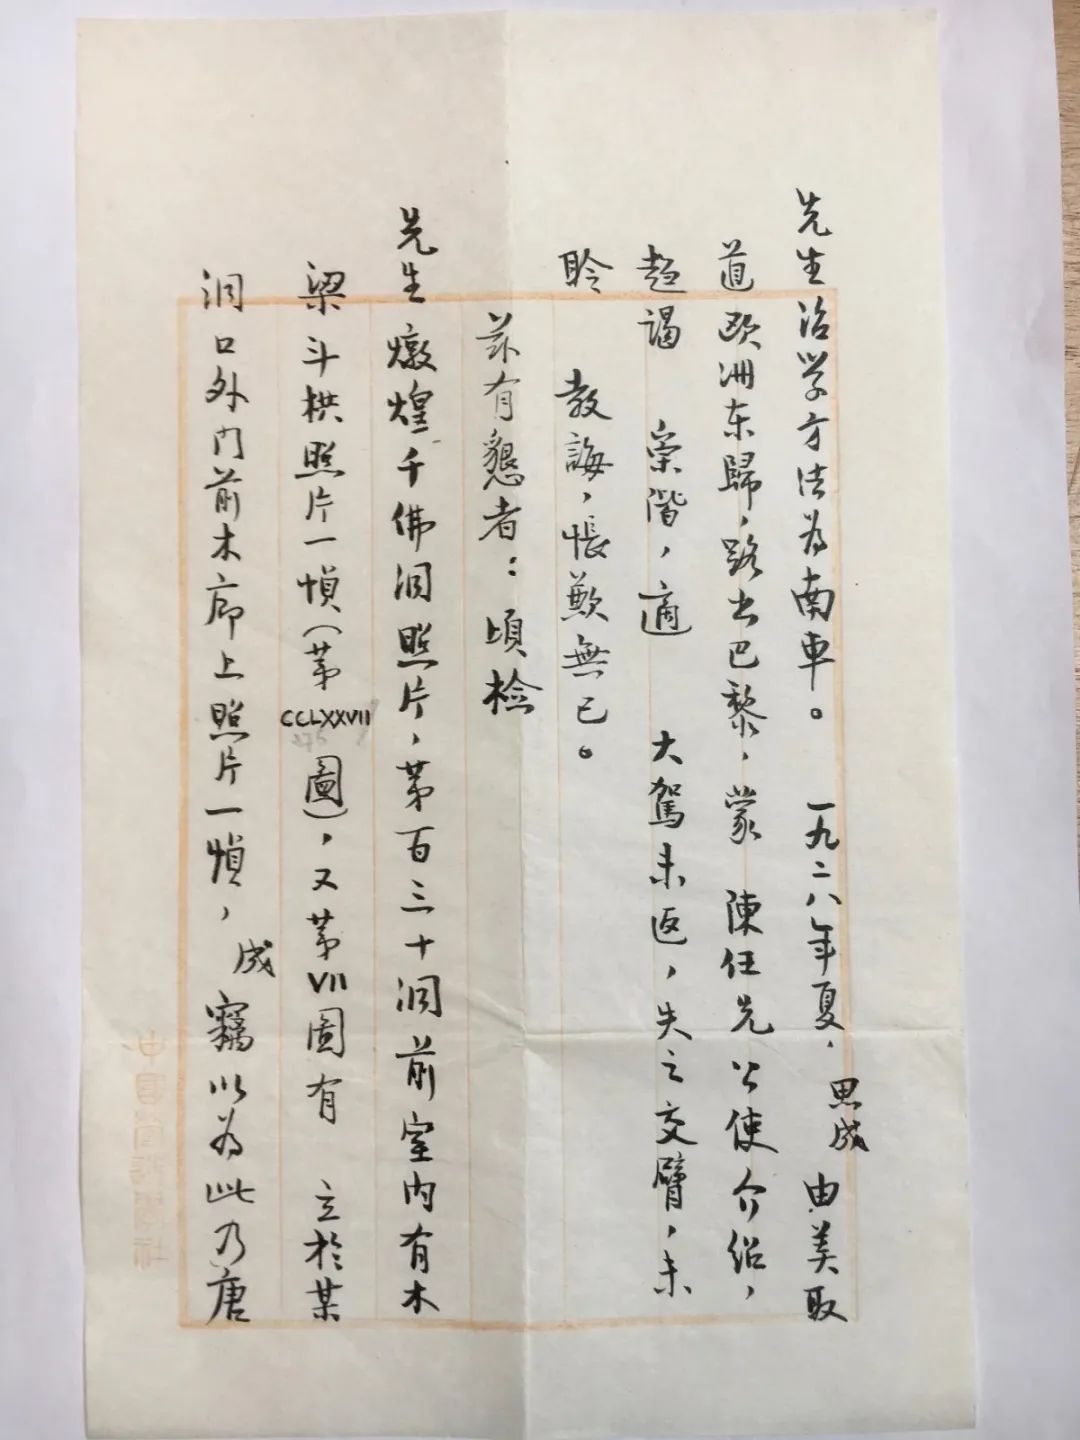 先生治学方法为南車。一九二八年夏，思成由美取
道欧洲东歸，路出巴黎，蒙陳任先公使介绍，
趋謁崇階，適大駕未返，失之交臂，未
聆教誨，悵歉無已。
兹有懇者：頃检
先生燉煌千佛洞照片，第百三十洞前室内有木
梁斗栱照片一幀（第CCLXXVII圖），又第VII圖有立於某
洞口外门前木廊上照片一幀，成竊以为此乃唐